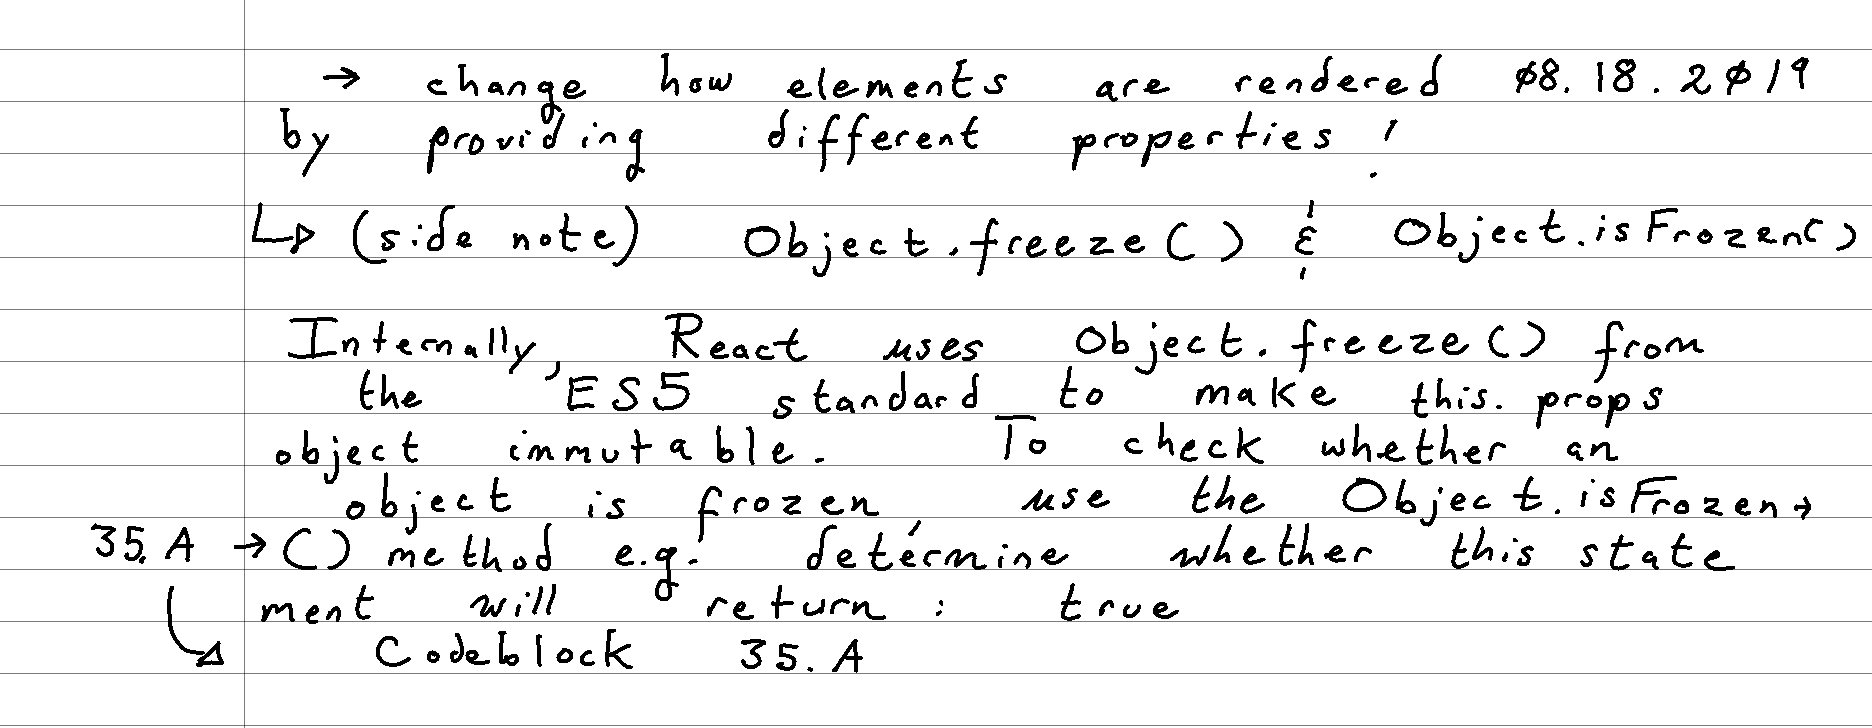 → change how elements are rendered 08.18.2019
by providing different properties!
↳ (side note) Object.freeze() & Object.isFrozen()
Internally, React uses Object.freeze() from
the ES5 standard to make this.props
object immutable. To check whether an
object is frozen, use the Object.isFrozen→
35.A → () method e.g. determine whether this state
ment will return : true
Codeblock 35.A